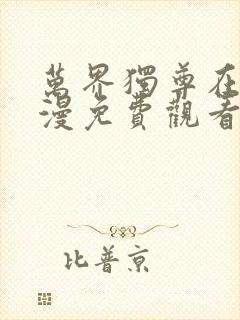 萬界獨尊在
漫免費觀看
比普京